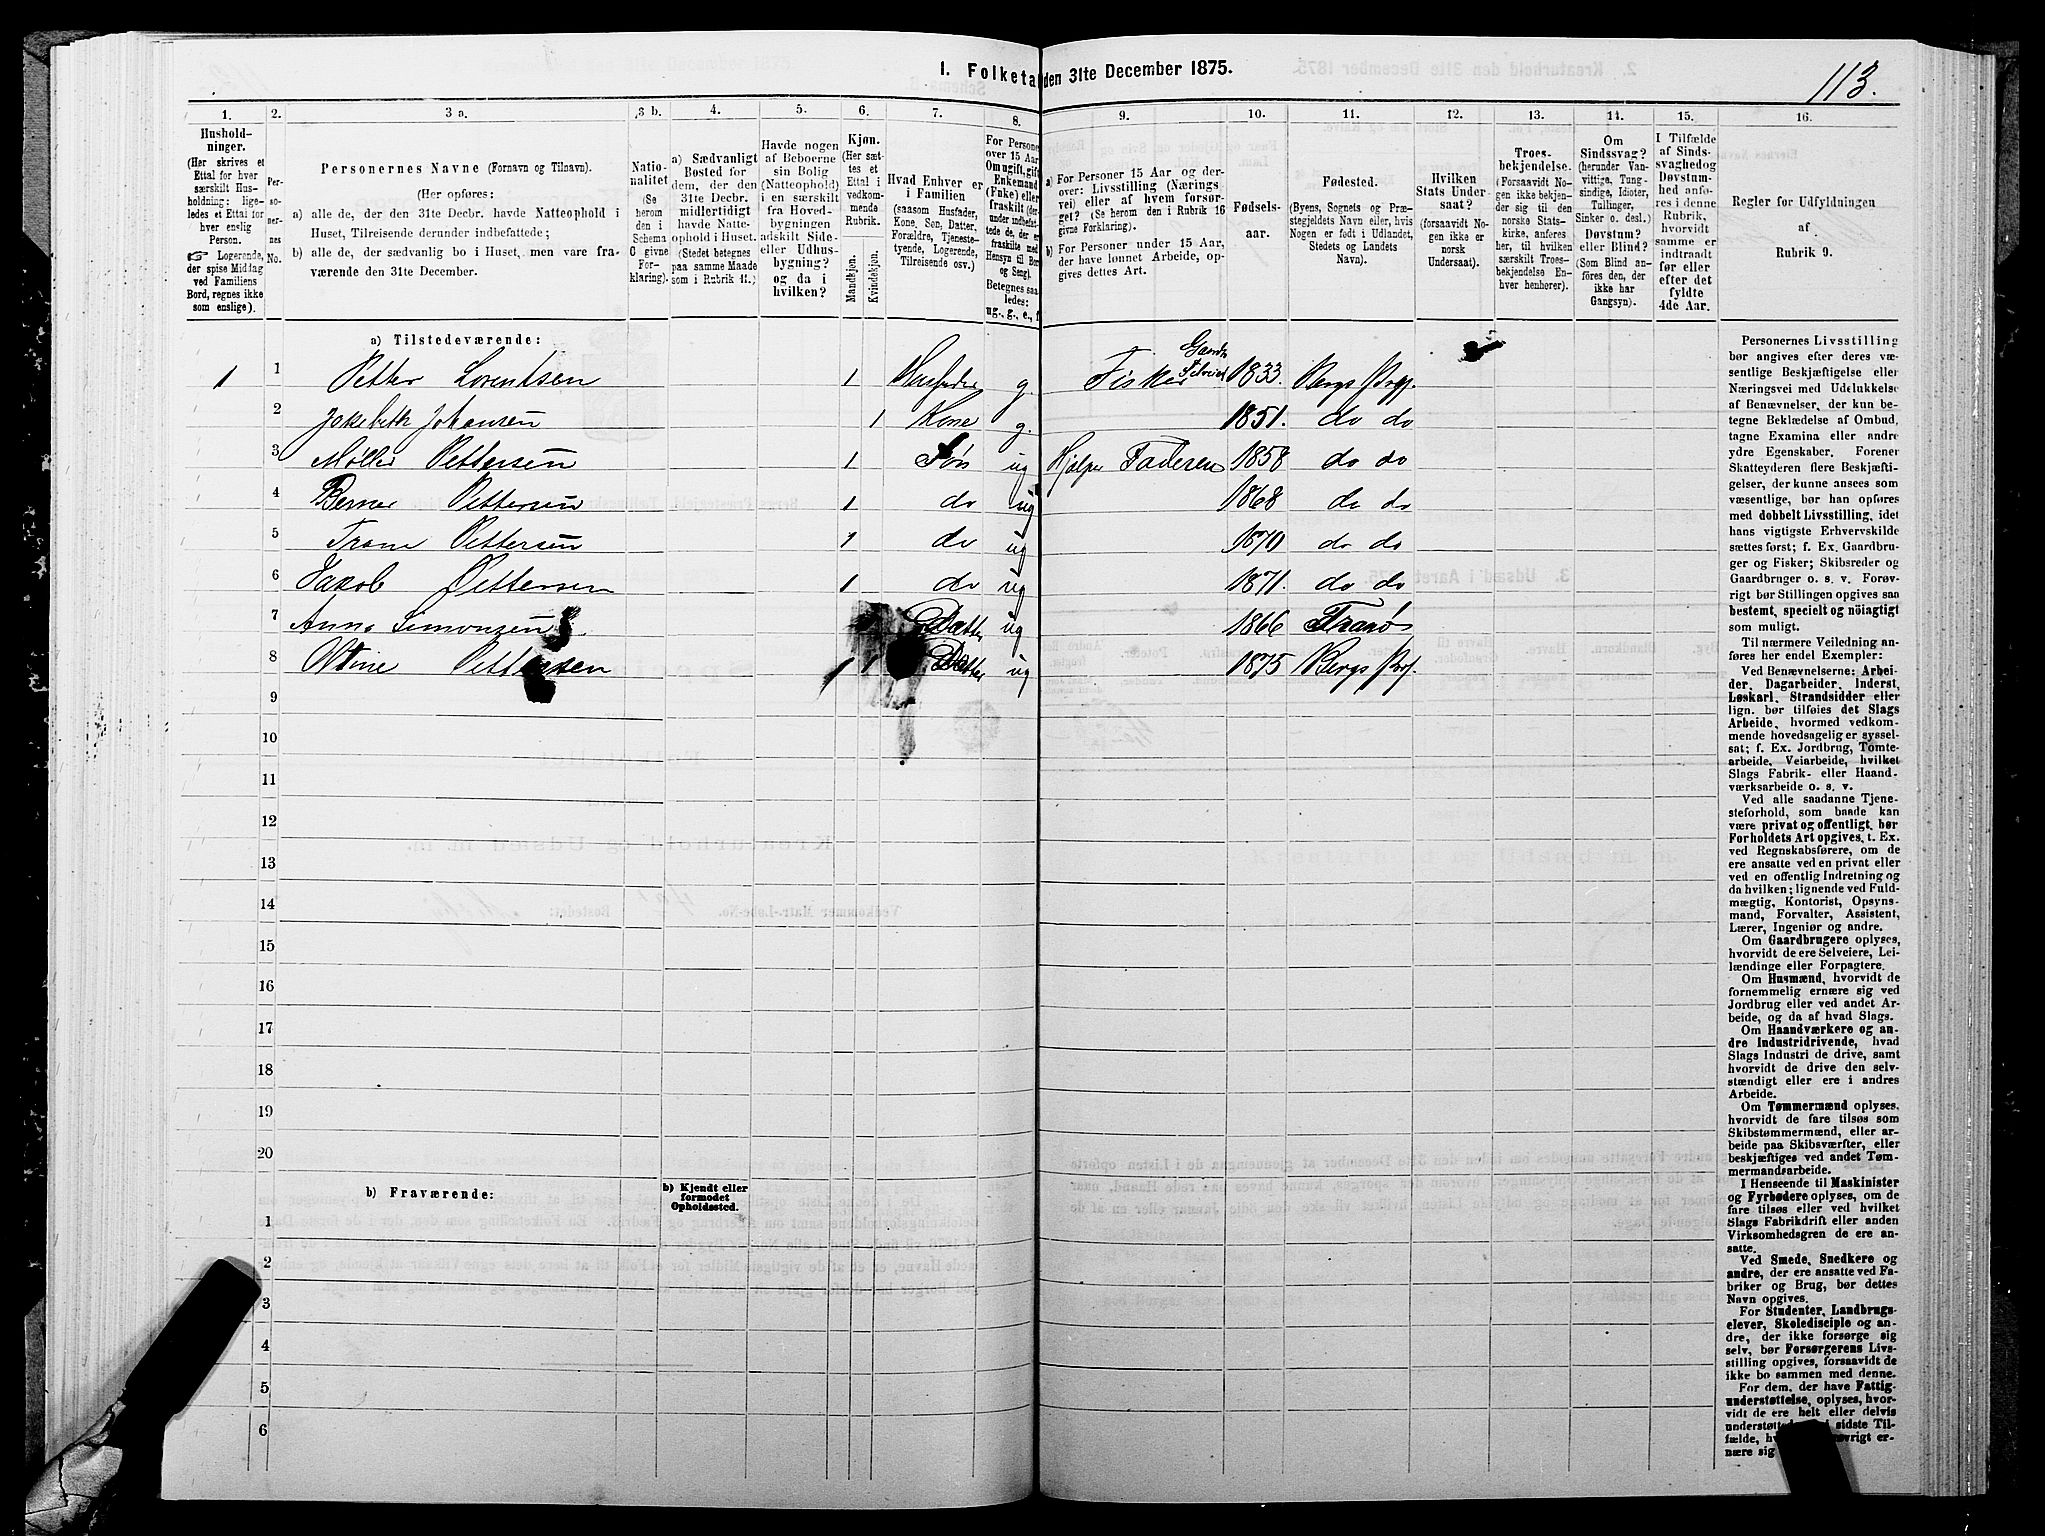 1. Folketal den 31te December 1875.
113.
1.
2.
3 a.
3 b.
4.
5.
6.
7.
8.
9.
10.
11.
12.
13.
14.
15.
16.
Hushold-
ninger.
(Her skrives et
Ettal for hver
særskilt Hus-
holdning; lige-
ledes et Ettal for
hver enslig
Person.
☞ Logerende,
der spise Middag
ved Familiens
Bord, regnes ikke
som enslige).
Per-
so-
ner-
nes
No.
Personernes Navne (Fornavn og Tilnavn).
(Her opføres:
a) alle de, der den 31te Decbr. havde Natteophold i
Huset, Tilreisende derunder indbefattede;
b) alle de, der sædvanlig bo i Huset, men vare fra-
værende den 31te December.
Natio-
nalitet
(Se
herom
den i
Schema
6 givne
For-
klaring).
a) Sædvanligt
Bosted for
dem, der den
31te Decbr.
midlertidigt
havde Natte-
ophold i Huset.
(Stedet betegnes
paa samme Maade
som i Rubrik 11.)
Havde nogen
af Beboerne
sin Bolig
(Natteophold)
i en særskilt
fra Hoved-
bygningen
adskilt Side-
eller Udhus-
bygning?
og da i
hvilken?
Kjøn.
(Her sæt-
tes et
Ettal i
vedkom-
mende
Rubrik.
Mandkjøn.
Kvindekjøn.
Hvad Enhver er
i Familien
(saasom Husfader,
Kone, Søn, Datter,
Forældre, Tjeneste-
tyende, Logerende,
Tilreisende osv.)
For Personer
over 15 Aar:
Om ugift, gift,
Enkemand
(Enke) eller
fraskilt (der-
under indbefat-
tede de, der ere
fraskilte med
Hensyn til Bord
og Seng).
Betegnes saa-
ledes:
ug., g., e., f.
a) For Personer 15 Aar og der-
over: Livsstilling (Nærings
vei) eller af hvem forsør-
get? (Se herom den i Rubrik 16
givne Forklaring).
b) For Personer under 15 Aar,
der have lønnet Arbeide, op-
gives dettes Art.
Fødsels-
aar.
Fødested.
(Byens, Sognets og Præ-
stegjeldets Navn eller, hvis
Nogen er født i Udlandet,
Stedets og Landets
Navn).
Hvilken
Stats Under-
saat?
(forsaavidt No-
gen ikke er
norsk
Undersaat).
Troes-
bekjendelse.
(Forsaavidt No-
gen ikke bekjen-
der sig til den
norske Stats-
kirke, anføres
her, til hvilken
særskilt Troes-
bekjendelse En-
hver henhører).
Om
Sindssvag?
(herunder Van-
vittige, Tung-
sindige, Idioter,
Tullinger,
Sinker o. desl.)
Døvstum?
eller Blind?
(Som Blind an-
føres den, der
ikke har
Gangsyn).
I Tilfælde
af Sinds-
svaghed og
Døvstum-
hed anfø-
res i denne
Rubrik,
hvorvidt
samme er
indtraadt
før eller
efter det
fyldte
4de Aar.
Regler før Udfyldningen
af
Rubrik 9.
a) Tilstedeværende:
1 1 Petter Lorentsen 1 Husfader g. Fisker Gaardb. Selveier 1833. Bergs Prgj.
2 Jakobik Johansen 1 Kone g. 1851. do do
3 Møller Pettersen 1 Søn ug Hjælper Faderen 1858 do do
4 Berner Pettersen 1 do ug 1868 do do
5 Trane Pettersen 1 do ug 1870 do do
6 Jakob Pettersen 1 do ug 1871. do do
7 Anna Simonsen Datter ug 1866 Tranø
8 Oltine Pettersen 1 1 Datter ug 1875 Bergs Prgj.
9
10
11
12
13
14
15
16
17
18
19
20
b) Fraværende:
b) Kjendt eller
formodet
Opholdssted.
1
2
3
4
5
6
Personernes Livsstilling
bør angives efter deres væ-
sentlige Beskjæftigelse eller
Næringsvei med Udelukkelse
af Benævnelser, der kun be-
tegne Beklædelse af Ombud,
tagne Examina eller andre
ydre Egenskaber. Forener
Skatteyderen flere Beskjæfti-
gelser, der kunne ansees som
væsentlige, bør han opføres
med dobbelt Livsstilling, idet
hans vigtigste Erhvervskilde
sættes først; f. Ex. Gaardbru-
ger og Fisker; Skibsreder og
Gaardbruger o. s. v. Forøv-
rigt bør Stillingen opgives saa
bestemt, specielt og nöiagtigt
som muligt.
Til nærmere Veiledning an-
føres her endel Exempler:
Ved Benævnelserne: Arbei-
der, Dagarbeider, Inderst,
Løskarl, Strandsidder eller
lign. bør tilføies det Slags
Arbeide, hvormed vedkom-
mende hovedsagelig er syssel-
sat; f. Ex. Jordbrug, Tømte-
arbeide, Veiarbeide, hvilket
Slags Fabrik- eller Haand-
værksarbeide o. s. v.
Ved alle saadanne Tjene-
steforhold, som baade kan
være privat og offentligt, bør
Forholdets Art opgives, t. Ex.
ved Regnskabsførere, om de
ere ansatte ved en privat eller
ved en offentlig Indretning og
da hvilken; lignende ved Fuld-
mægtig, Kontorist, Opsyns-
mand, Forvalter, Assistent,
Lærer, Ingeniør og andre.
Om Gaardbrugere oplyses,
hvorvidt de ere Selveiere, Lei-
lændinge eller Forpagtere.
Om Husmænd, hvorvidt de
fornemmelig ernære sig ved
Jordbrug eller ved andet Ar-
beide, og da af hvad Slags.
Om Haandværkere og an-
dre Industridrivende, hvad
Slags Industri de drive, samt
hvorvidt de drive den selv-
stændigt eller ere i andres
Arbeide.
Om Tømmermænd oplyses,
hvorvidt de fare tilsøs som
Skibstømmermænd, eller ar-
beide paa Skibsværfter, eller
beskjæftiges ved andet Tøm-
mermandsarbeide.
I Henseende til Maskinister
og Fyrbødere oplyses, om de
fare tilsøs eller ved hvilket
Slags Fabrikdrift eller anden
Virksomhedsgren de ere an-
satte.
Ved Smede, Snedkere og
andre, der ere ansatte ved Fa-
briker og Brug, bør dettes
Navn opgives.
For Studenter, Landbrugs-
elever, Skoledisciple og an-
dre, der ikke forsørge sig
selv, bør Forsørgerens Livs-
stilling opgives, forsaavidt de
ikke bo sammen med denne.
For dem, der have Fattig-
understøttelse, oplyses, hvor-
vidt de ere helt eller delvis
understøtte i sidste Til-
fælde, øvrigt er-
nære sig